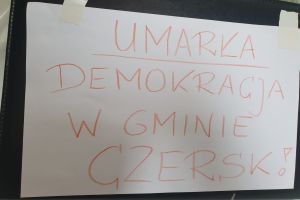 UMARŁA
DEMOKRACJA
W GMINIE
CZERSK!